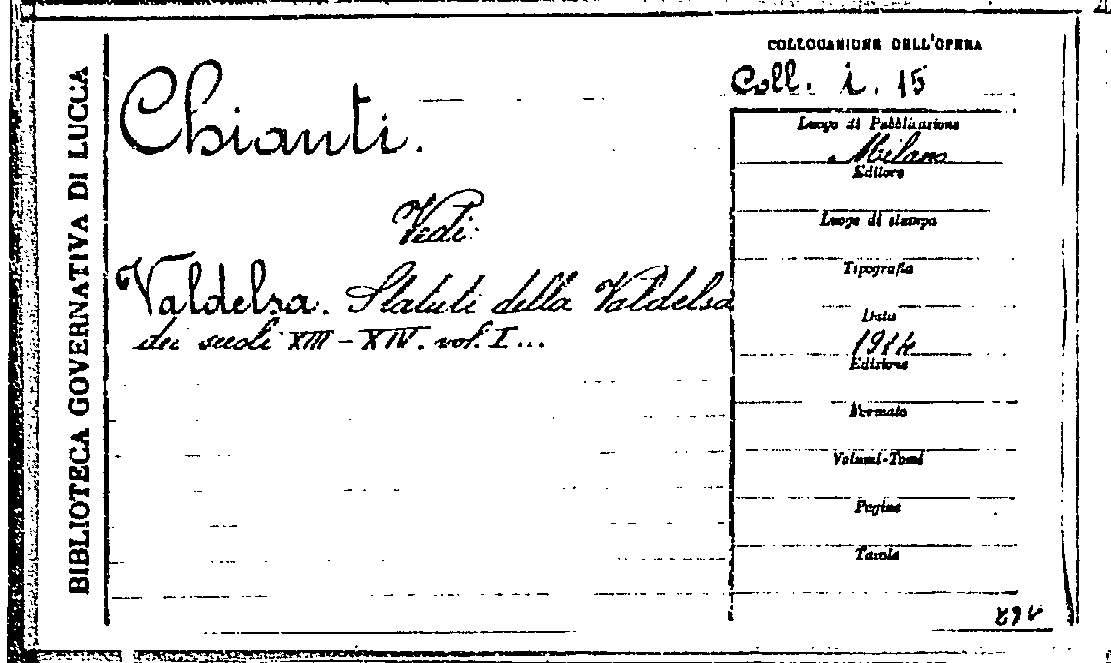 BIBLIOTECA GOVERNATIVA DI LUCCA
Chianti.
Vedi:
Valdelsa. Statuti della Valdelsa
dei secoli XIII - XIV. vol. I...
COLLOCAZIONE DELL'OPERA
Coll. i. 15
Luogo di Pubblicazione
Milano
Editore
Luogo di stampa
Tipografia
Data
1914
Edizione
Formato
Volumi-Tomi
Pagine
Tavole